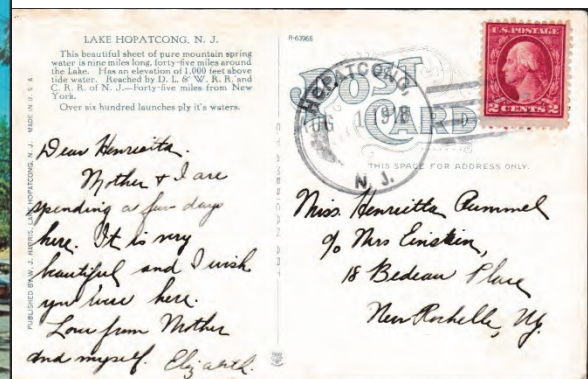 LAKE HOPATCONG, N. J.
This beautiful sheet of pure mountain spring
water is nine miles long, forty-five miles around
the Lake. Has an elevation of 1,000 feet above
tide water. Reached by D. L. & W. R. R. and
C. R. R. of N. J.—Forty-five miles from New
York.
Over six hundred launches ply it's waters.
Dear Henrietta.
Mother & I are
spending a few days
here. It is very
beautiful and I wish
you were here.
Love from Mother
and myself. Elizabeth.
PUBLISHED BY W. J. HARRIS, LAKE HOPATCONG, N. J. MADE IN U. S. A.
POST
CARD
HOPATCONG,
1918
N. J.
U.S. POSTAGE
2 CENTS 2
THIS SPACE FOR ADDRESS ONLY.
Miss. Henrietta Rummel
c/o Mrs Einstein,
18 Bedeau Place
New Rochelle, Ny.